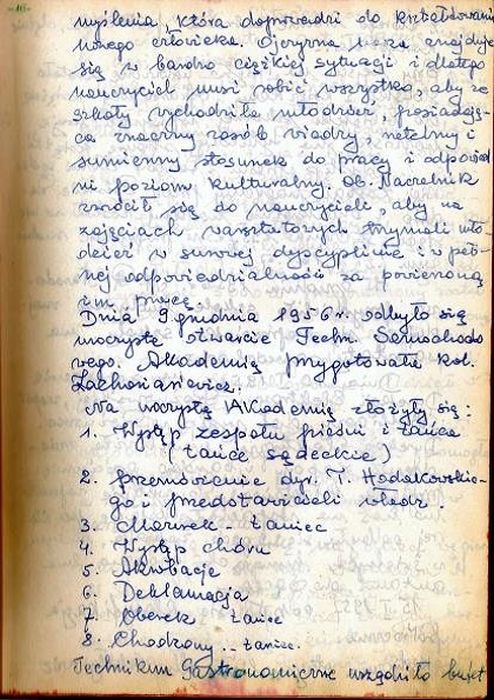 myślenia, która doprowadzi do kształtowania
nowego człowieka. Ojczyzna nasza znajduje
się w bardzo ciężkiej sytuacji i dlatego
nauczyciel musi robić wszystko, aby ze
szkoły wychodziła młodzież, posiadają-
ca znaczny zasób wiedzy, rzetelny i
sumienny stosunek do pracy i odpowied
ni poziom kulturalny. Ob. Naczelnik
zwrócił się do nauczycieli, aby na
zajęciach warsztatowych trzymali mło-
dzież w surowej dyscyplinie i w peł-
nej odpowiedzialności za powierzoną
im pracę.
Dnia 9 grudnia 1956 r. odbyło się
uroczyste otwarcie Techn. Samochodo
wego. Akademią przygotowała kol.
Zachosiasiewicz.
Na uroczystą Akademią złożyły się:
1. Występ zespołu pieśni i tańca
(tańce sądeckie)
2. przemówienie dyr. T. Hodakowskie-
go i przedstawicieli władz.
3. Mazurek - taniec
4. Występ chóru
5. Akrobacje
6. Deklamacja
7. Oberek taniec
8. Chodzony .. taniec.
Technikum Gastronomiczne urządziło bufet